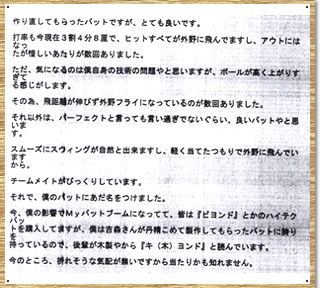 作り直してもらったバットですが、とても良いです。
打率も今現在３割４分８厘で、ヒットすべてが外野に飛んでますし、アウトには
なっ
たが惜しいあたりが数回ありました。
ただ、気になるのは僕自身の技術の問題やと思いますが、ボールが高く上がりすぎ
てる感じがします。
その為、飛距離が伸びず外野フライになっているのが数回ありました。
それ以外は、パーフェクトと言っても言い過ぎでないぐらい、良いバットやと思
いま
す。
スムーズにスウィングが自然と出来ますし、軽く当てたつもりで外野に飛んでい
ます
から。
チームメイトがびっくりしています。
それで、僕のバットにあだ名をつけました。
今、僕の影響でＭｙバットブームになってて、皆は『ビヨンド』とかのハイテク
バッ
トを購入してますが、僕は吉森さんが丹精こめて製作してもらったバットに誇り
を
持っているので、後輩が木製やから『キ（木）ヨンド』と読んでいます。
今のところ、折れそうな気配が無いですから当たりかも知れません。